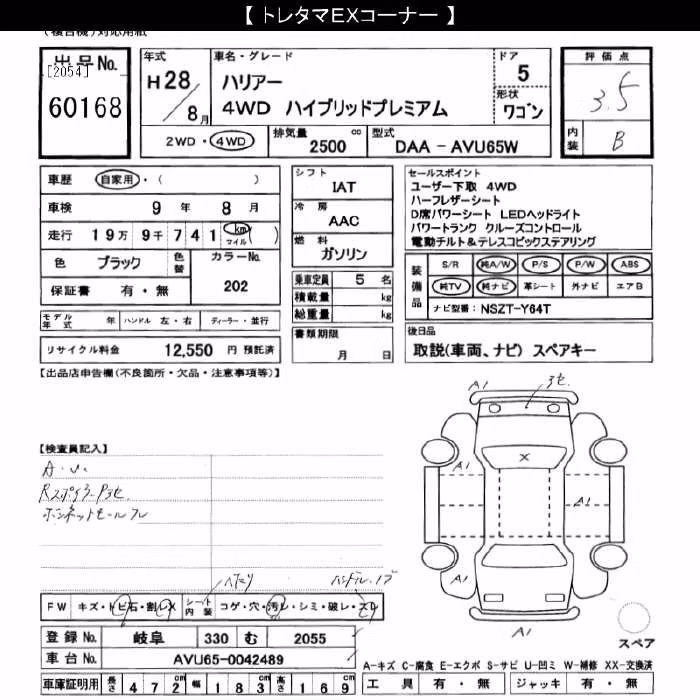 【 トレタマEXコーナー 】
(複合機)対応用紙
出品No.
[2054]
60168
年式
H28/8月
車名・グレード
ハリアー
4WD ハイブリッドプレミアム
ドア
5
形状
ワゴン
2WD・4WD
排気量
2500 cc
型式
DAA - AVU65W
評価点
3.5
内装
B
車歴 自家用・( )
車検 9 年 8 月
走行 19万 9千 741 km マイル )
色 ブラック 色替 カラーNo.
202
保証書 有・無
モデル年式 年 ハンドル 左・右 ディーラー・並行
リサイクル料金 12,550 円 預託済
シフト
IAT
冷房
AAC
燃料
ガソリン
乗車定員 5 名
積載量 kg
総重量 kg
書類期限
月 日
セールスポイント
ユーザー下取 4WD
ハーフレザーシート
D席パワーシート LEDヘッドライト
パワートランク クルーズコントロール
電動チルト&テレスコピックステアリング
装備品
S/R 純A/W P/S P/W ABS
純TV 純ナビ 革シート 外ナビ エアB
ナビ型番: NSZT-Y64T
後日品
取説(車両、ナビ) スペアキー
【出品店申告欄(不良箇所・欠品・注意事項等)】
【検査員記入】
A・U.
Rスポイラー P3セ
ボンネットモールフレ
A1
A1
X
A1
A1
A1
A1
FW キズ・トビ石・割レX シート内装 コゲ・穴・汚レ・シミ・破レ・スレ
ヘタリ
ハンドル・ノブ
登録 No. 岐阜 330 む 2055
車台 No. AVU65-0042489
車庫証明用 長さ 472 cm 幅 183 cm 高さ 169 cm
スペア
A-キズ C-腐食 E-エクボ S-サビ U-凹ミ W-補修 XX-交換済
工具 有・無 ジャッキ 有・無